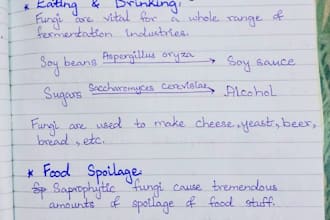 * Eating & Drinking:
Fungi are vital for a whole range of
fermentation industries.
Soy beans Aspergillus oryza → Soy sauce
Sugars Saccharomyces cerevisiae → Alcohol
Fungi are used to make cheese, yeast, beer,
bread, etc.
* Food Spoilage
Saprophytic fungi cause tremendous
amounts of spoilage of food stuff.